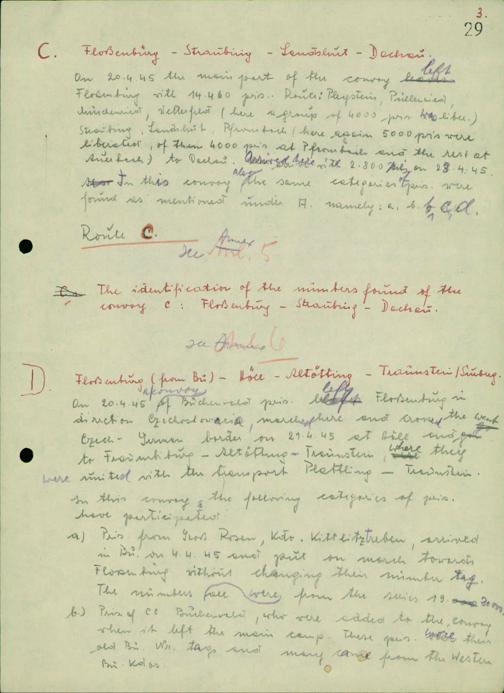 3.
29
C. Floßenbürg - Straubing - Landshut - Dachau.
On 20.4.45 the main part of the convoy left
Floßenbürg with 14.460 pris. Route: Pleystein,
(here a group of 4000 pris was liber.)
Straubing, Landshut, Pfrombach (here again 5000 pris were
liberated, of them 4000 pris at Pfrombach and the rest at
) to Dachau. Arrived here with 2.800 only on 28.4.45.
In this convoy also the same categories of pris. were
found as mentioned under A. namely: a. b. c. d.
Route C.
see Annex 5
The identification of the numbers found of the
convoy C: Floßenbürg - Straubing - Dachau.
see Annex 6
D. Floßenburg (from Bu) - - Altötting - Traunstein/
On 20.4.45 a convoy of Buchenwald pris. left Floßenburg in
direction Czechoslovacia, marched here and across the
Czech- German border on 21.4.45 at and
to - Altötting - Traunstein where they
were united with the transport Plattling - Traunstein.
In this convoy the following categories of pris.
have participated:
a) Pris from Gross Rosen, Kdo. Kittlitztreben, arrived
in Bu. on 4.4.45 and put on march towards
Flossenburg without changing their number tag.
The numbers all were from the series 19.
b.) Pris of CC Buchenwald, who were added to the convoy
when it left the main camp. These pris. wore their
old Bu. No. tags and many came from the Western
Bu. Kdos.